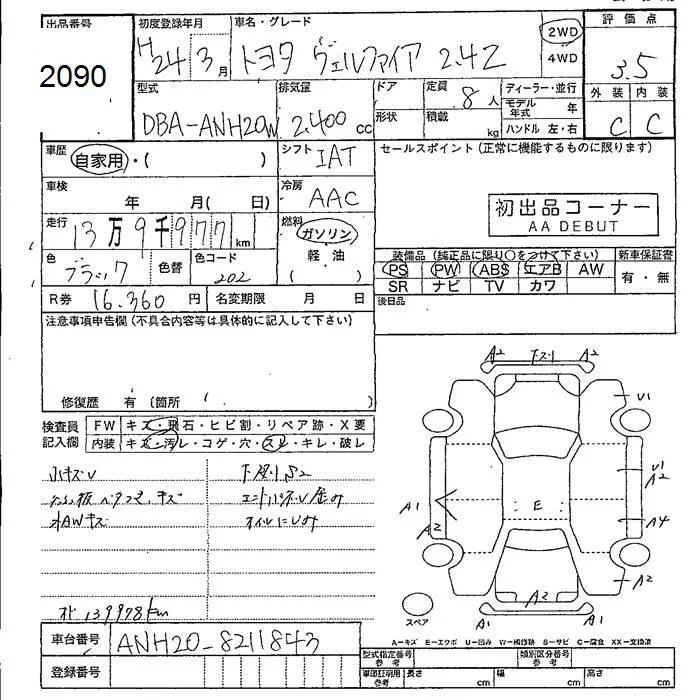 出品番号
2090
初度登録年月
H24 3月
車名・グレード
トヨタ ヴェルファイア 2.4Z
2WD
4WD
評価点
3.5
外装 内装
C C
型式
DBA-ANH20W
排気量
2,400 cc
ドア
定員
8人
形状
積載
kg
ディーラー・並行
モデル年式 年
ハンドル 左・右
車歴
自家用・( )
シフト
IAT
セールスポイント(正常に機能するものに限ります)
車検
年 月( 日)
冷房
AAC
初出品コーナー
AA DEBUT
走行
13万9千977km
燃料
ガソリン
軽油
( )
色
ブラック
色替
色コード
202
装備品(純正品に限り○をつけて下さい)
新車保証書
PS PW ABS エアB AW
有・無
SR ナビ TV カワ
R券 16,360円
名変期限 月 日
後日品
注意事項申告欄(不具合内容等は具体的に記入して下さい)
修復歴 有(箇所 )
検査員記入欄
FW キズ・飛石・ヒビ割・リペア跡・X要
内装 キズ・汚レ・コゲ・穴・スレ・キレ・破レ
小キズU
下廻りS2
キズ
AWキズ
オイルにじみ
139978km
A2 下スリ A2
U1
U1
A2
A1
A2
E
A4
A2
A2
A1 A1
スペア
A－キズ E－エクボ U－凹み W－補修跡 S－サビ C－腐食 XX－交換済
車台番号
ANH20-8211843
登録番号
型式指定番号 参考
類別区分番号 参考
車印証明用 参考
長さ cm
幅 cm
高さ cm